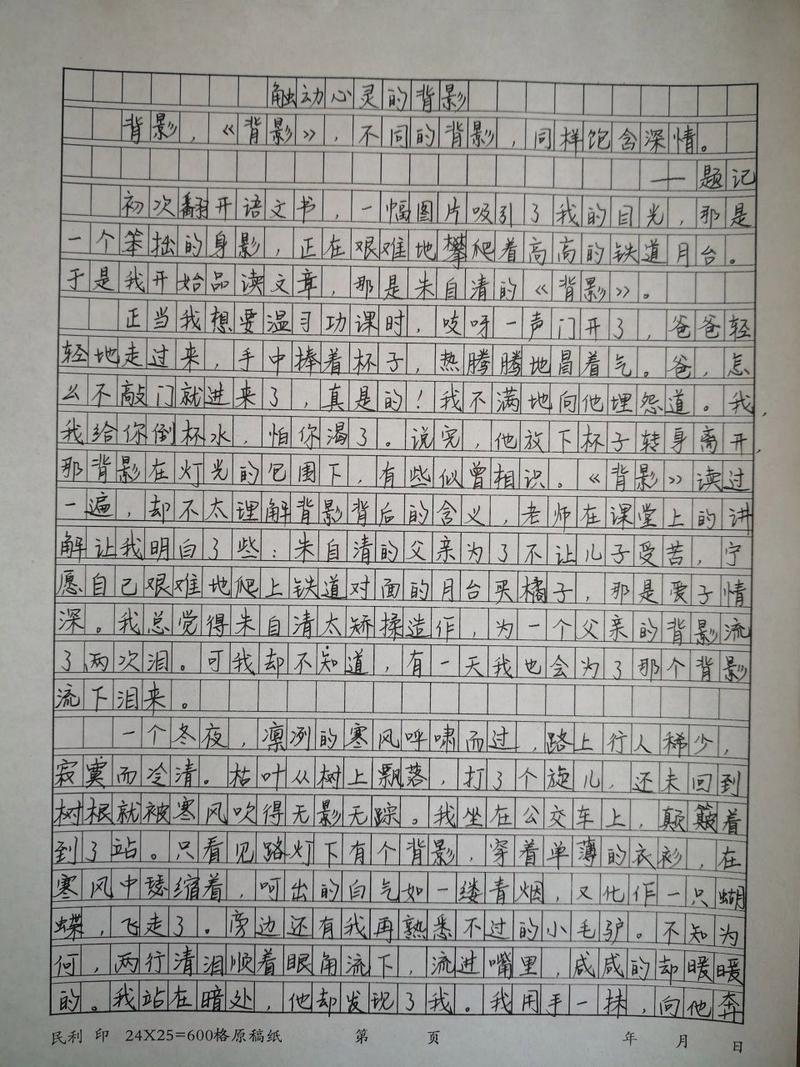 触动心灵的背影
背影，《背影》，不同的背影，同样饱含深情。
——题记
初次翻开语文书，一幅图片吸引了我的目光，那是
一个笨拙的身影，正在艰难地攀爬着高高的铁道月台。
于是我开始品读文章，那是朱自清的《背影》。
正当我想要温习功课时，吱呀一声门开了，爸爸轻
轻地走过来，手中捧着杯子，热腾腾地冒着气。爸，怎
么不敲门就进来了，真是的！我不满地向他埋怨道。我，
我给你倒杯水，怕你渴了。说完，他放下杯子转身离开，
那背影在灯光的包围下，有些似曾相识。《背影》读过
一遍，却不太理解背影背后的含义，老师在课堂上的讲
解让我明白了些：朱自清的父亲为了不让儿子受苦，宁
愿自己艰难地爬上铁道对面的月台买橘子，那是爱子情
深。我总觉得朱自清太矫揉造作，为一个父亲的背影流
了两次泪。可我却不知道，有一天我也会为了那个背影
流下泪来。
一个冬夜，凛冽的寒风呼啸而过，路上行人稀少，
寂寞而冷清。枯叶从树上飘落，打了个旋儿，还未回到
树根就被寒风吹得无影无踪。我坐在公交车上，颠簸着
到了站。只看见路灯下有个背影，穿着单薄的衣衫，在
寒风中瑟缩着，呵出的白气如一缕青烟，又化作一只蝴
蝶，飞走了。旁边还有我再熟悉不过的小毛驴。不知为
何，两行清泪顺着眼角流下，流进嘴里，咸咸的却暖暖
的。我站在暗处，他却发现了我。我用手一抹，向他奔
民利 印 24X25=600格原稿纸 第 页 年 月 日